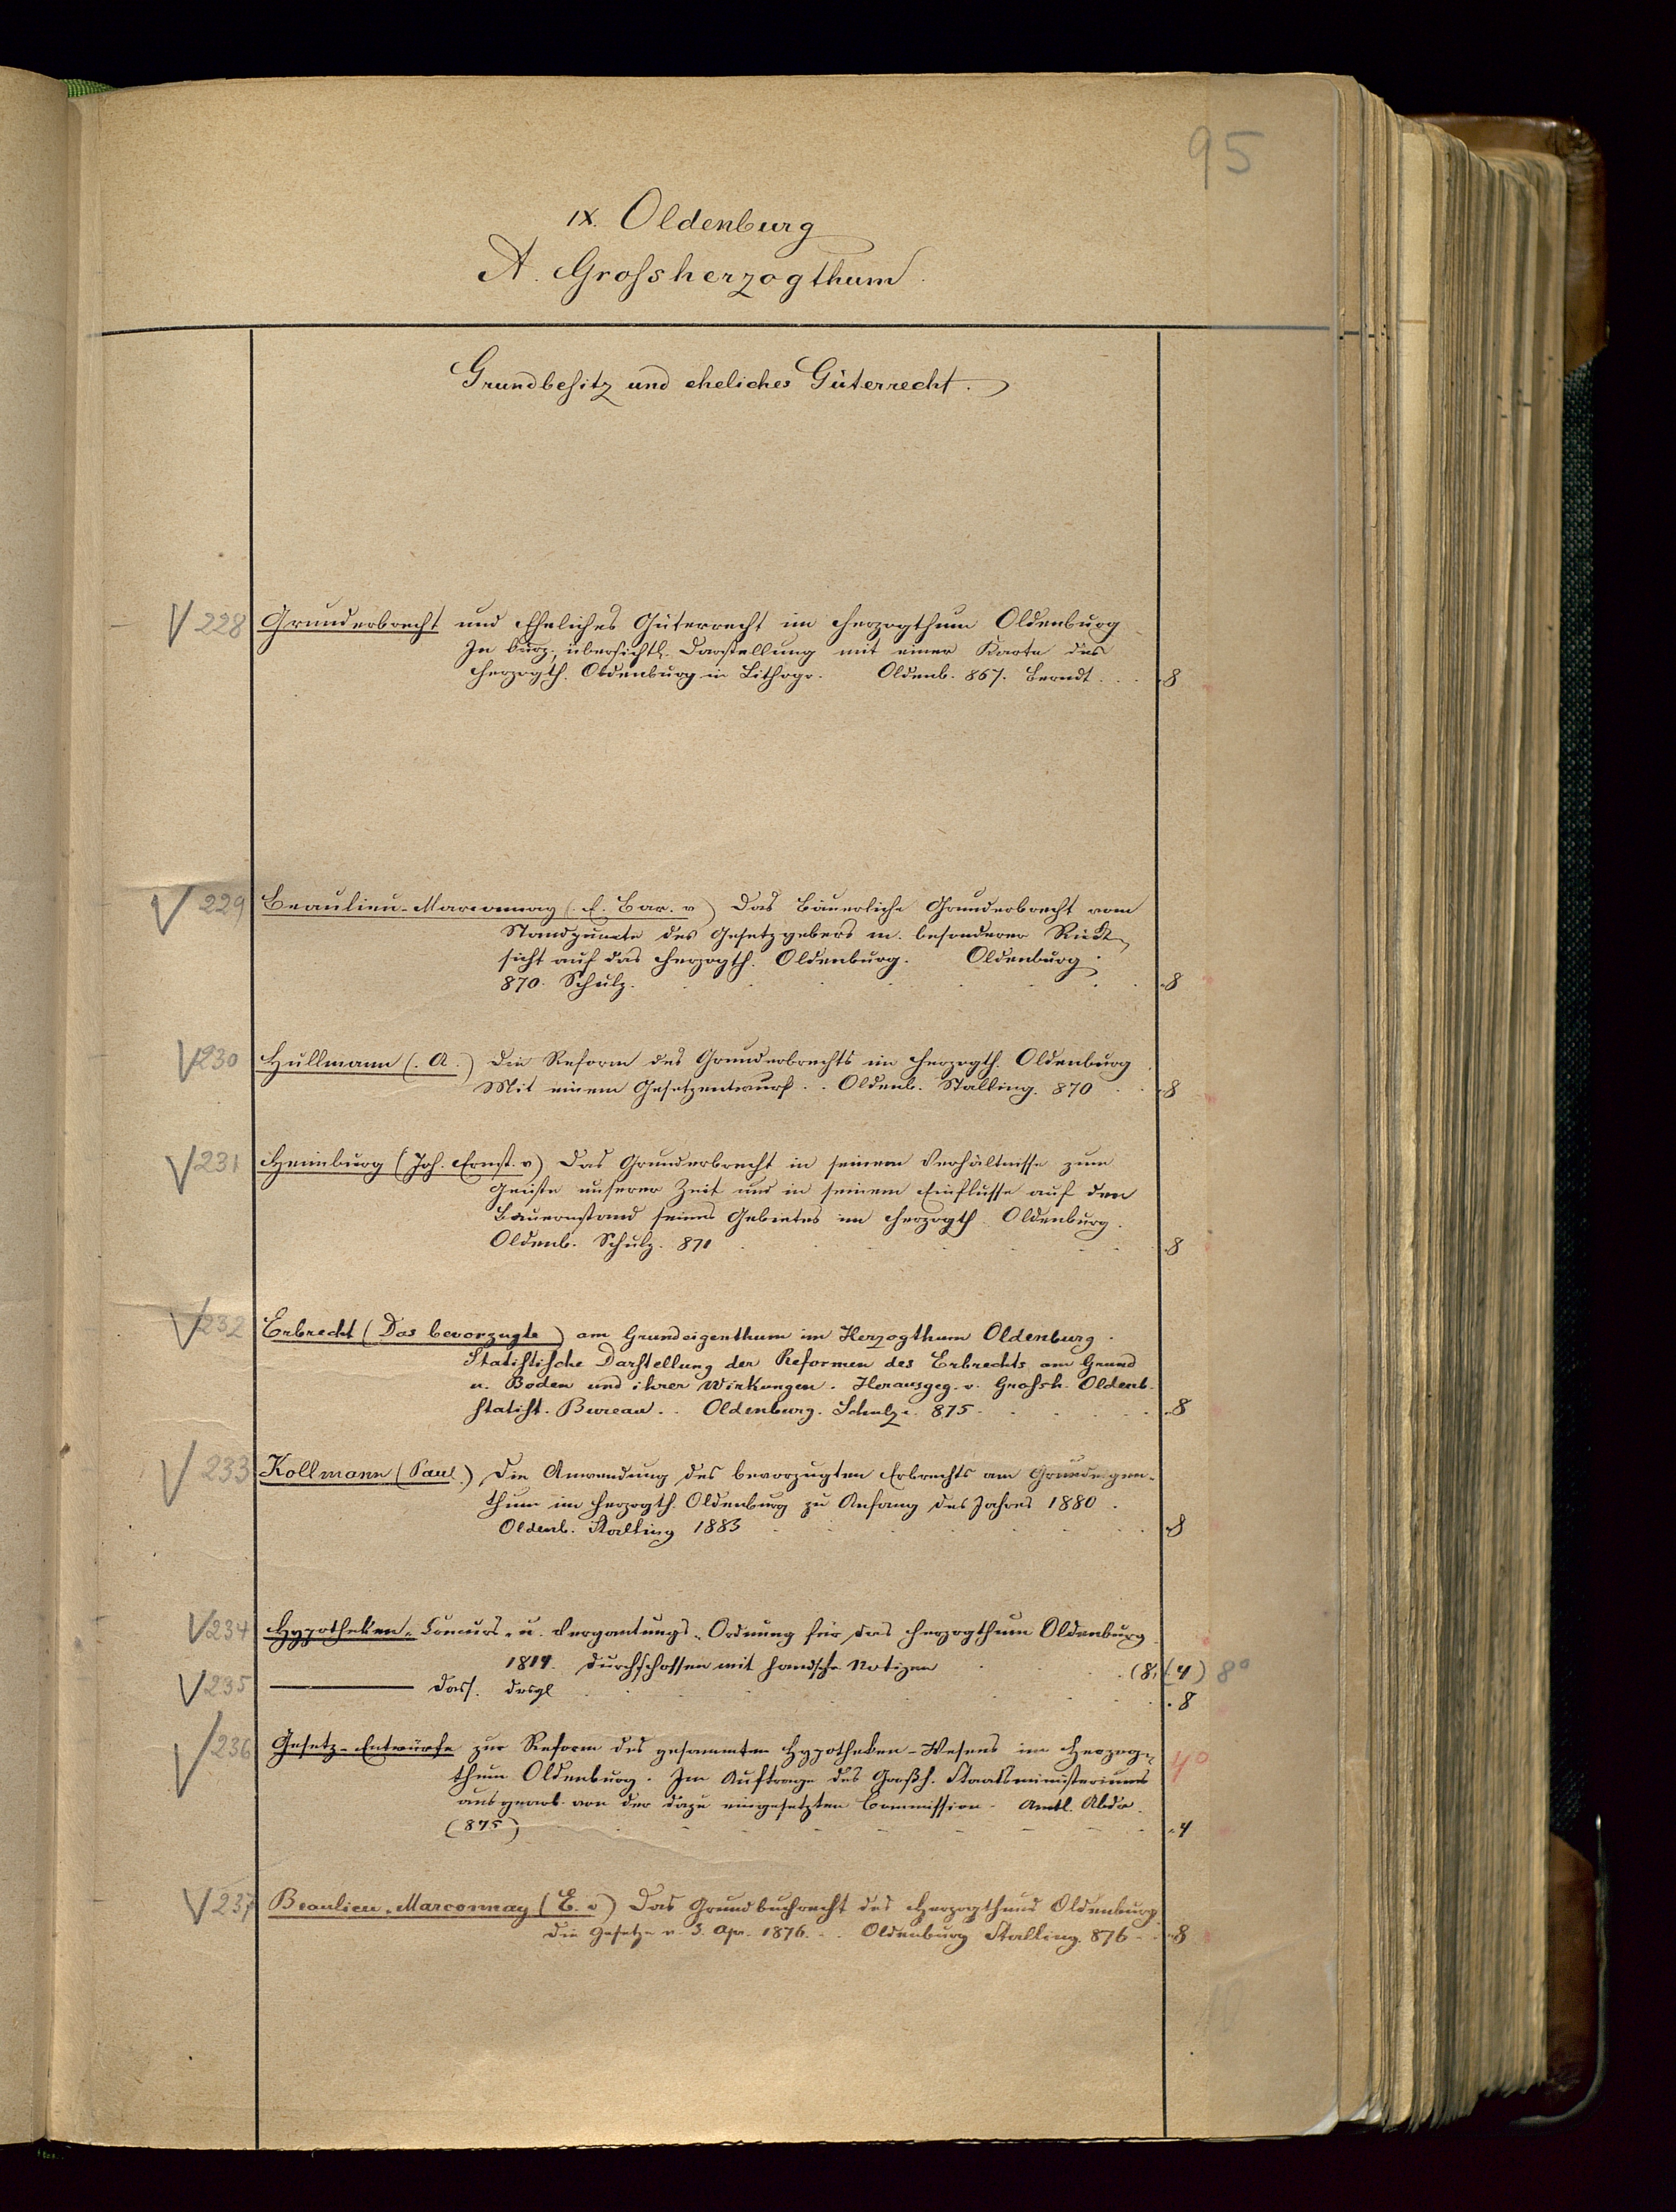 95
IX. Oldenburg
A. Grossherzogthum
Grundbesitz und eheliches Güterrecht.
V 228 Grunderbrecht und Eheliches Güterrecht im Herzogthum Oldenburg
In kurz. übersichtl. Darstellung mit einer Karte des
Herzogth. Oldenburg in Lithogr. Oldenb. 867. Berndt . . . 8
V 229 Beaulieu-Marconnay (E. Bar. v) Das bäuerliche Grunderbrecht vom
Standpuncte des Gesetzgebers m. besonderer Rück-
sicht auf das Herzogth. Oldenburg. Oldenburg.
870. Schulz. . . . 8
V 230 Hullmann (A.) Die Reform des Grunderbrechts im Herzogth. Oldenburg
Mit einem Gesetzentwurf. . Oldenb. Stalling. 870 . . 8
V 231 Heimburg (Joh. Ernst. v) Das Grunderbrecht in seinem Verhältnisse zum
Geiste unserer Zeit und in seinem Einflusse auf den
Bauernstand seines Gebietes im Herzogth. Oldenburg.
Oldenb. Schulz. 871 . . . 8
V 232 Erbrecht (Das bevorzugte) am Grundeigenthum im Herzogthum Oldenburg.
Statistische Darstellung der Reformen des Erbrechts am Grund
u. Boden und ihrer Wirkungen. Herausgeg. v. Grossh. Oldenb.
statist. Bureau. . Oldenburg. Schulze. 875 . . . 8
V 233 Kollmann (Paul.) Die Anwendung des bevorzugten Erbrechts am Grundeigen-
thum im Herzogth. Oldenburg zu Anfang des Jahres 1880.
Oldenb. Stalling 1883 . . . 8
V 234 Hypotheken- Concurs- u. Vergantungs-Ordnung für das Herzogthum Oldenburg
1814. durchschossen mit handsch. Notizen . . (8, (4) 8°
V 235 ——— Dass. desgl . . . 8
V 236 Gesetz-Entwürfe zur Reform des gesammten Hypotheken-Wesens im Herzog- 4°
thum Oldenburg. Im Auftrage des Großh. Staatsministeriums
ausgearb. von der dazu eingesetzten Commission. Amtl. Abdr.
(875) . . . 4
V 237 Beaulieu-Marconnay (E. v) Das Grundbuchrecht des Herzogthums Oldenburg.
Die Gesetze v. 3. Apr. 1876. . . Oldenburg Stalling. 876 . . 8